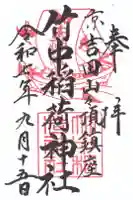 奉拝
京吉田山々頂鎮座
竹中稲荷神社
令和二年九月十五日